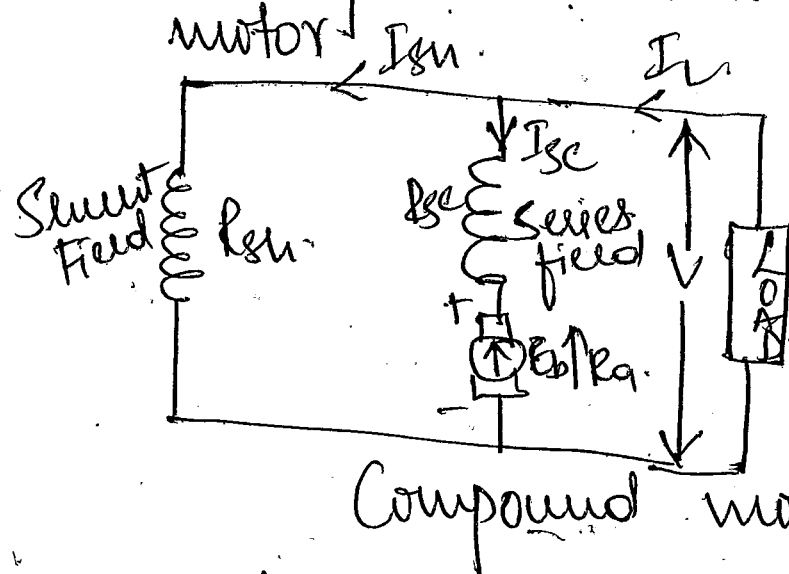 motor
Ish.
IL
Isc
Shunt
Field
Rsh.
Rse
Series
field
V
LOAD
+
Eb Ra.
-
Compound mo